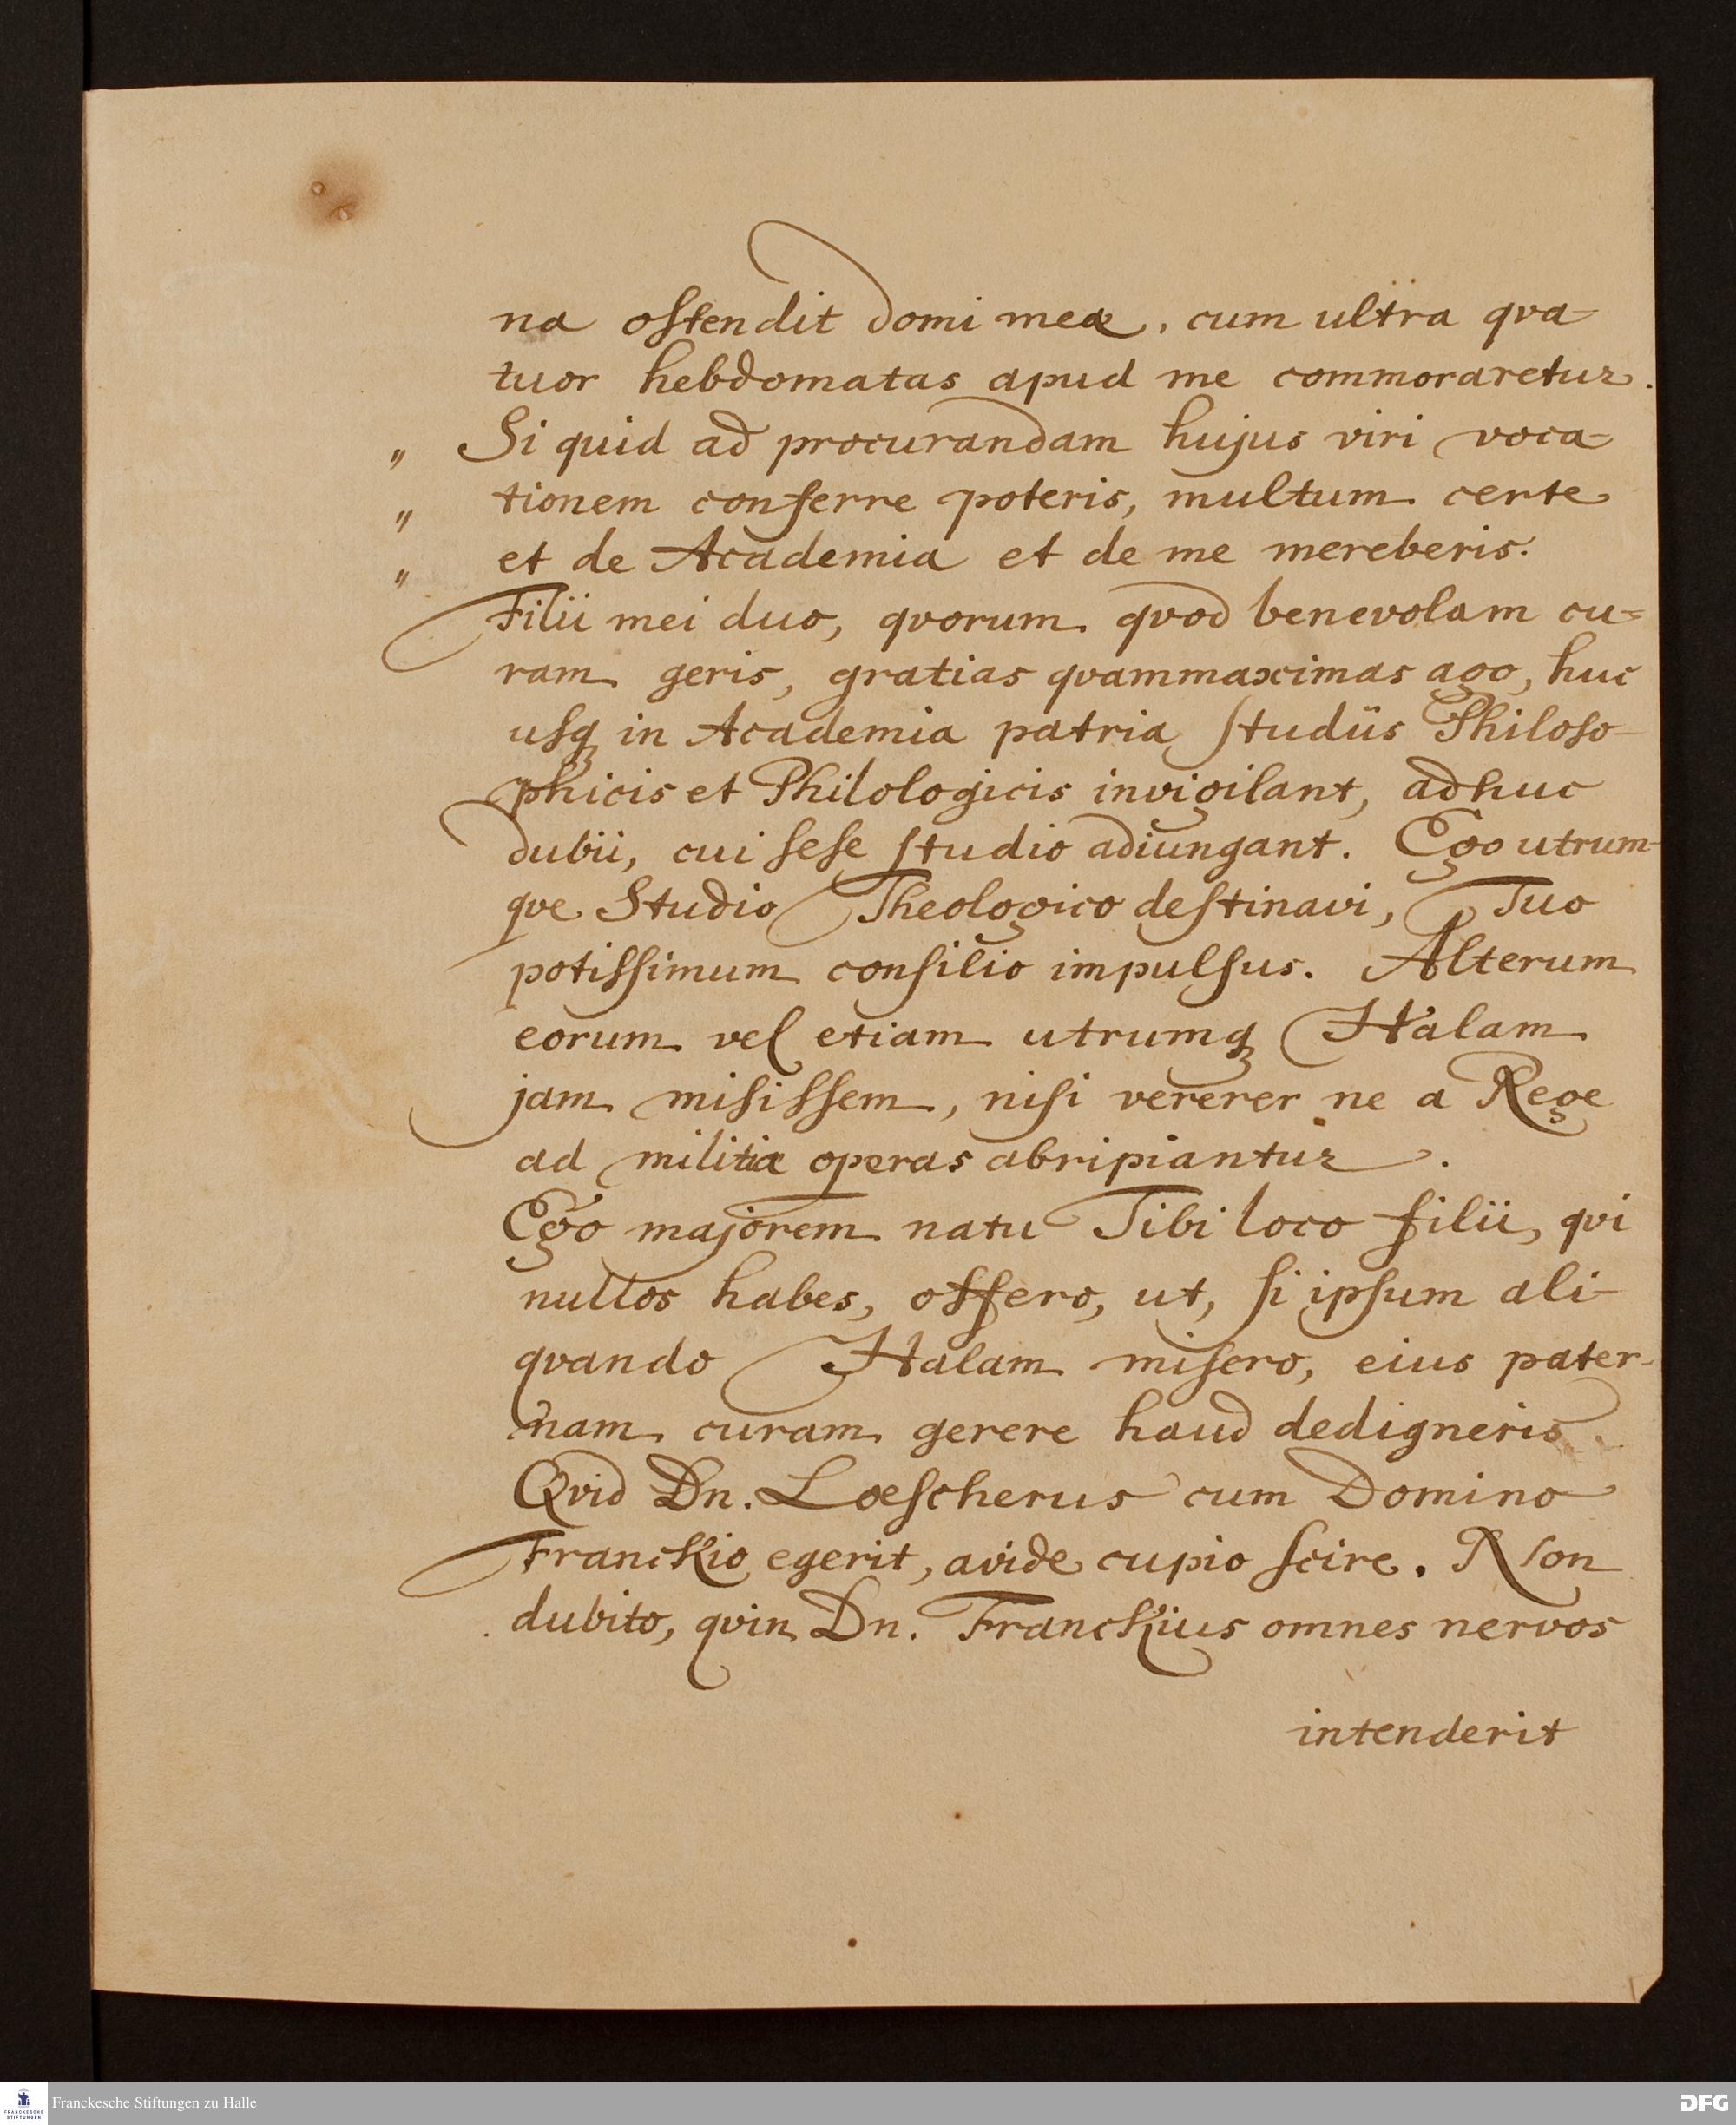 na ostendit domi meæ, cum ultra qva-
tuor hebdomatas apud me commoraretur.
„ Si quid ad procurandam hujus viri voca=
„ tionem conferre poteris, multum certe
„ et de Academia et de me mereberis.
Filii mei duo, qvorum qvod benevolam cu=
ram geris, gratias qvammaximas ago, huc
usq in Academia patria studiis Philoso-
phicis et Philologicis invigilant, adhuc
dubii, cui sese studio adiungant. Ego utrum-
qve Studio Theologico destinavi, Tuo
potissimum consilio impulsus. Alterum
eorum vel etiam utrumq Halam
jam misissem, nisi vererer ne a Rege
ad militiæ operas abripiantur.
Ego majorem natu Tibi loco filii, qvi
nullos habes, offero, ut, si ipsum ali-
qvando Halam misero, eius pater-
nam curam gerere haud dedigneris.
Qvid Dn. Loescherus cum Domino
Franckio egerit, avide cupio scire. Non
dubito, qvin Dn. Franckius omnes nervos
intenderit
Franckesche Stiftungen zu Halle
FRANCKESCHE
STIFTUNGEN
DFG